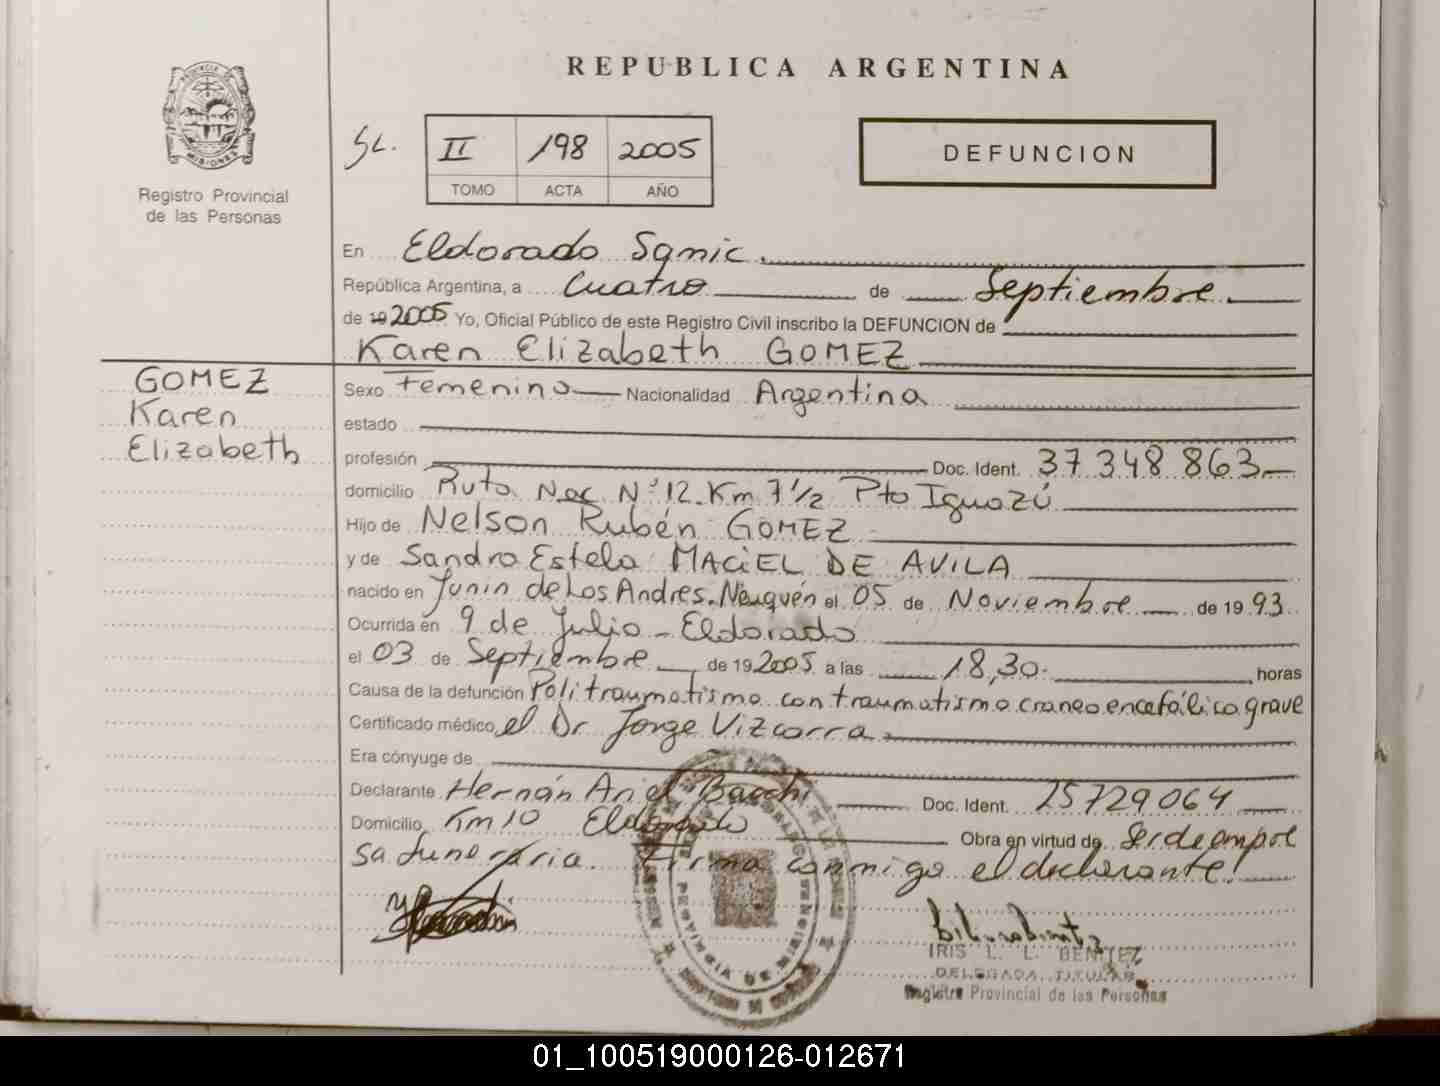 REPUBLICA ARGENTINA
PROVINCIA DE
MISIONES
Registro Provincial
de las Personas
SL.
II 198 2005
TOMO ACTA AÑO
DEFUNCION
En Eldorado Sgmic.
República Argentina, a Cuatro de Septiembre
de 19 2005 Yo, Oficial Público de este Registro Civil inscribo la DEFUNCION de
Karen Elizabeth GOMEZ
GOMEZ
Karen
Elizabeth
Sexo Femenino Nacionalidad Argentina
estado
profesión Doc. Ident. 37 348 863
domicilio Ruta Nac Nº 12 Km 7 1/2 Pto Iguazú
Hijo de Nelson Rubén GOMEZ
y de Sandra Estela MACIEL DE AVILA
nacido en Junin de Los Andres. Neuquén el 05 de Noviembre de 19 93
Ocurrida en 9 de Julio - Eldorado
el 03 de Septiembre de 19 2005 a las 18,30 horas
Causa de la defunción Politraumatismo con traumatismo craneoencefálico grave
Certificado médico el Dr Jorge Vizcarra
Era cónyuge de
Declarante Hernán Ariel Bacchi Doc. Ident. 25729064
Domicilio Km 10 Eldorado Obra en virtud de Ser de empre
sa funeraria. Firma conmigo el declarante!
IRIS L. L. BENITEZ
DELEGADA TITULAR
Registro Provincial de las Personas
01_100519000126-012671